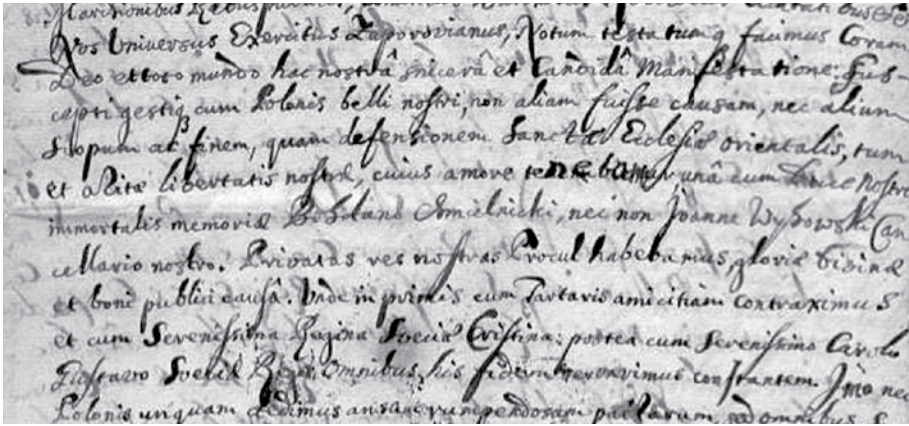 Marchionibus
Nos Universus Exercitus Zaporovianus, Notum testatumq facimus Coram
Deo et toto mundo hac nostrâ sincerâ et Candidâ Manifestatione: Sus-
cepti gestiq cum Polonis belli nostri, non aliam fuisse causam, nec alium
Scopum ac finem, quam defensionem Sanctæ Eclesiæ Orientalis, tum
et avitæ libertatis nostræ, cuius amore tenebamur unâ cum Duce Nostro
immortalis memoriæ Bohdano Chmielnicki, nec non Joanne Wyhowski Can
cellario nostro. Privatas res nostras Procul habebamus, gloriæ Divinæ
et boni publici causâ. Unde in primis cum Tartaris amicitiam contraximus
et cum Serenissima Regina Sveciæ Cristina: postea cum Serenissimo Carolo
Gustavo Sveciæ Rege. Omnibus his fidem servavimus constantem. Imo nec
Polonis unquam dedimus ansam pactarum, omnibus